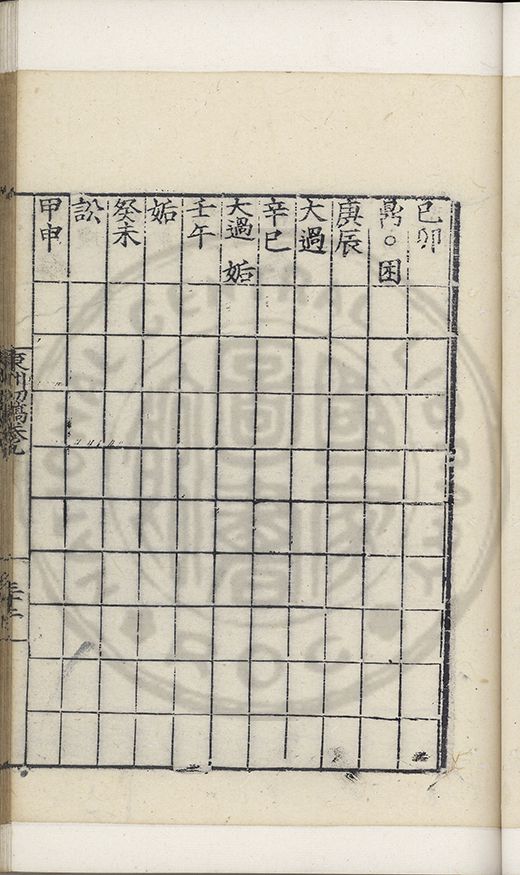 己卯
鼎○困
庚辰
大過
辛巳
大過 姤
壬午
姤
癸未
訟
甲申